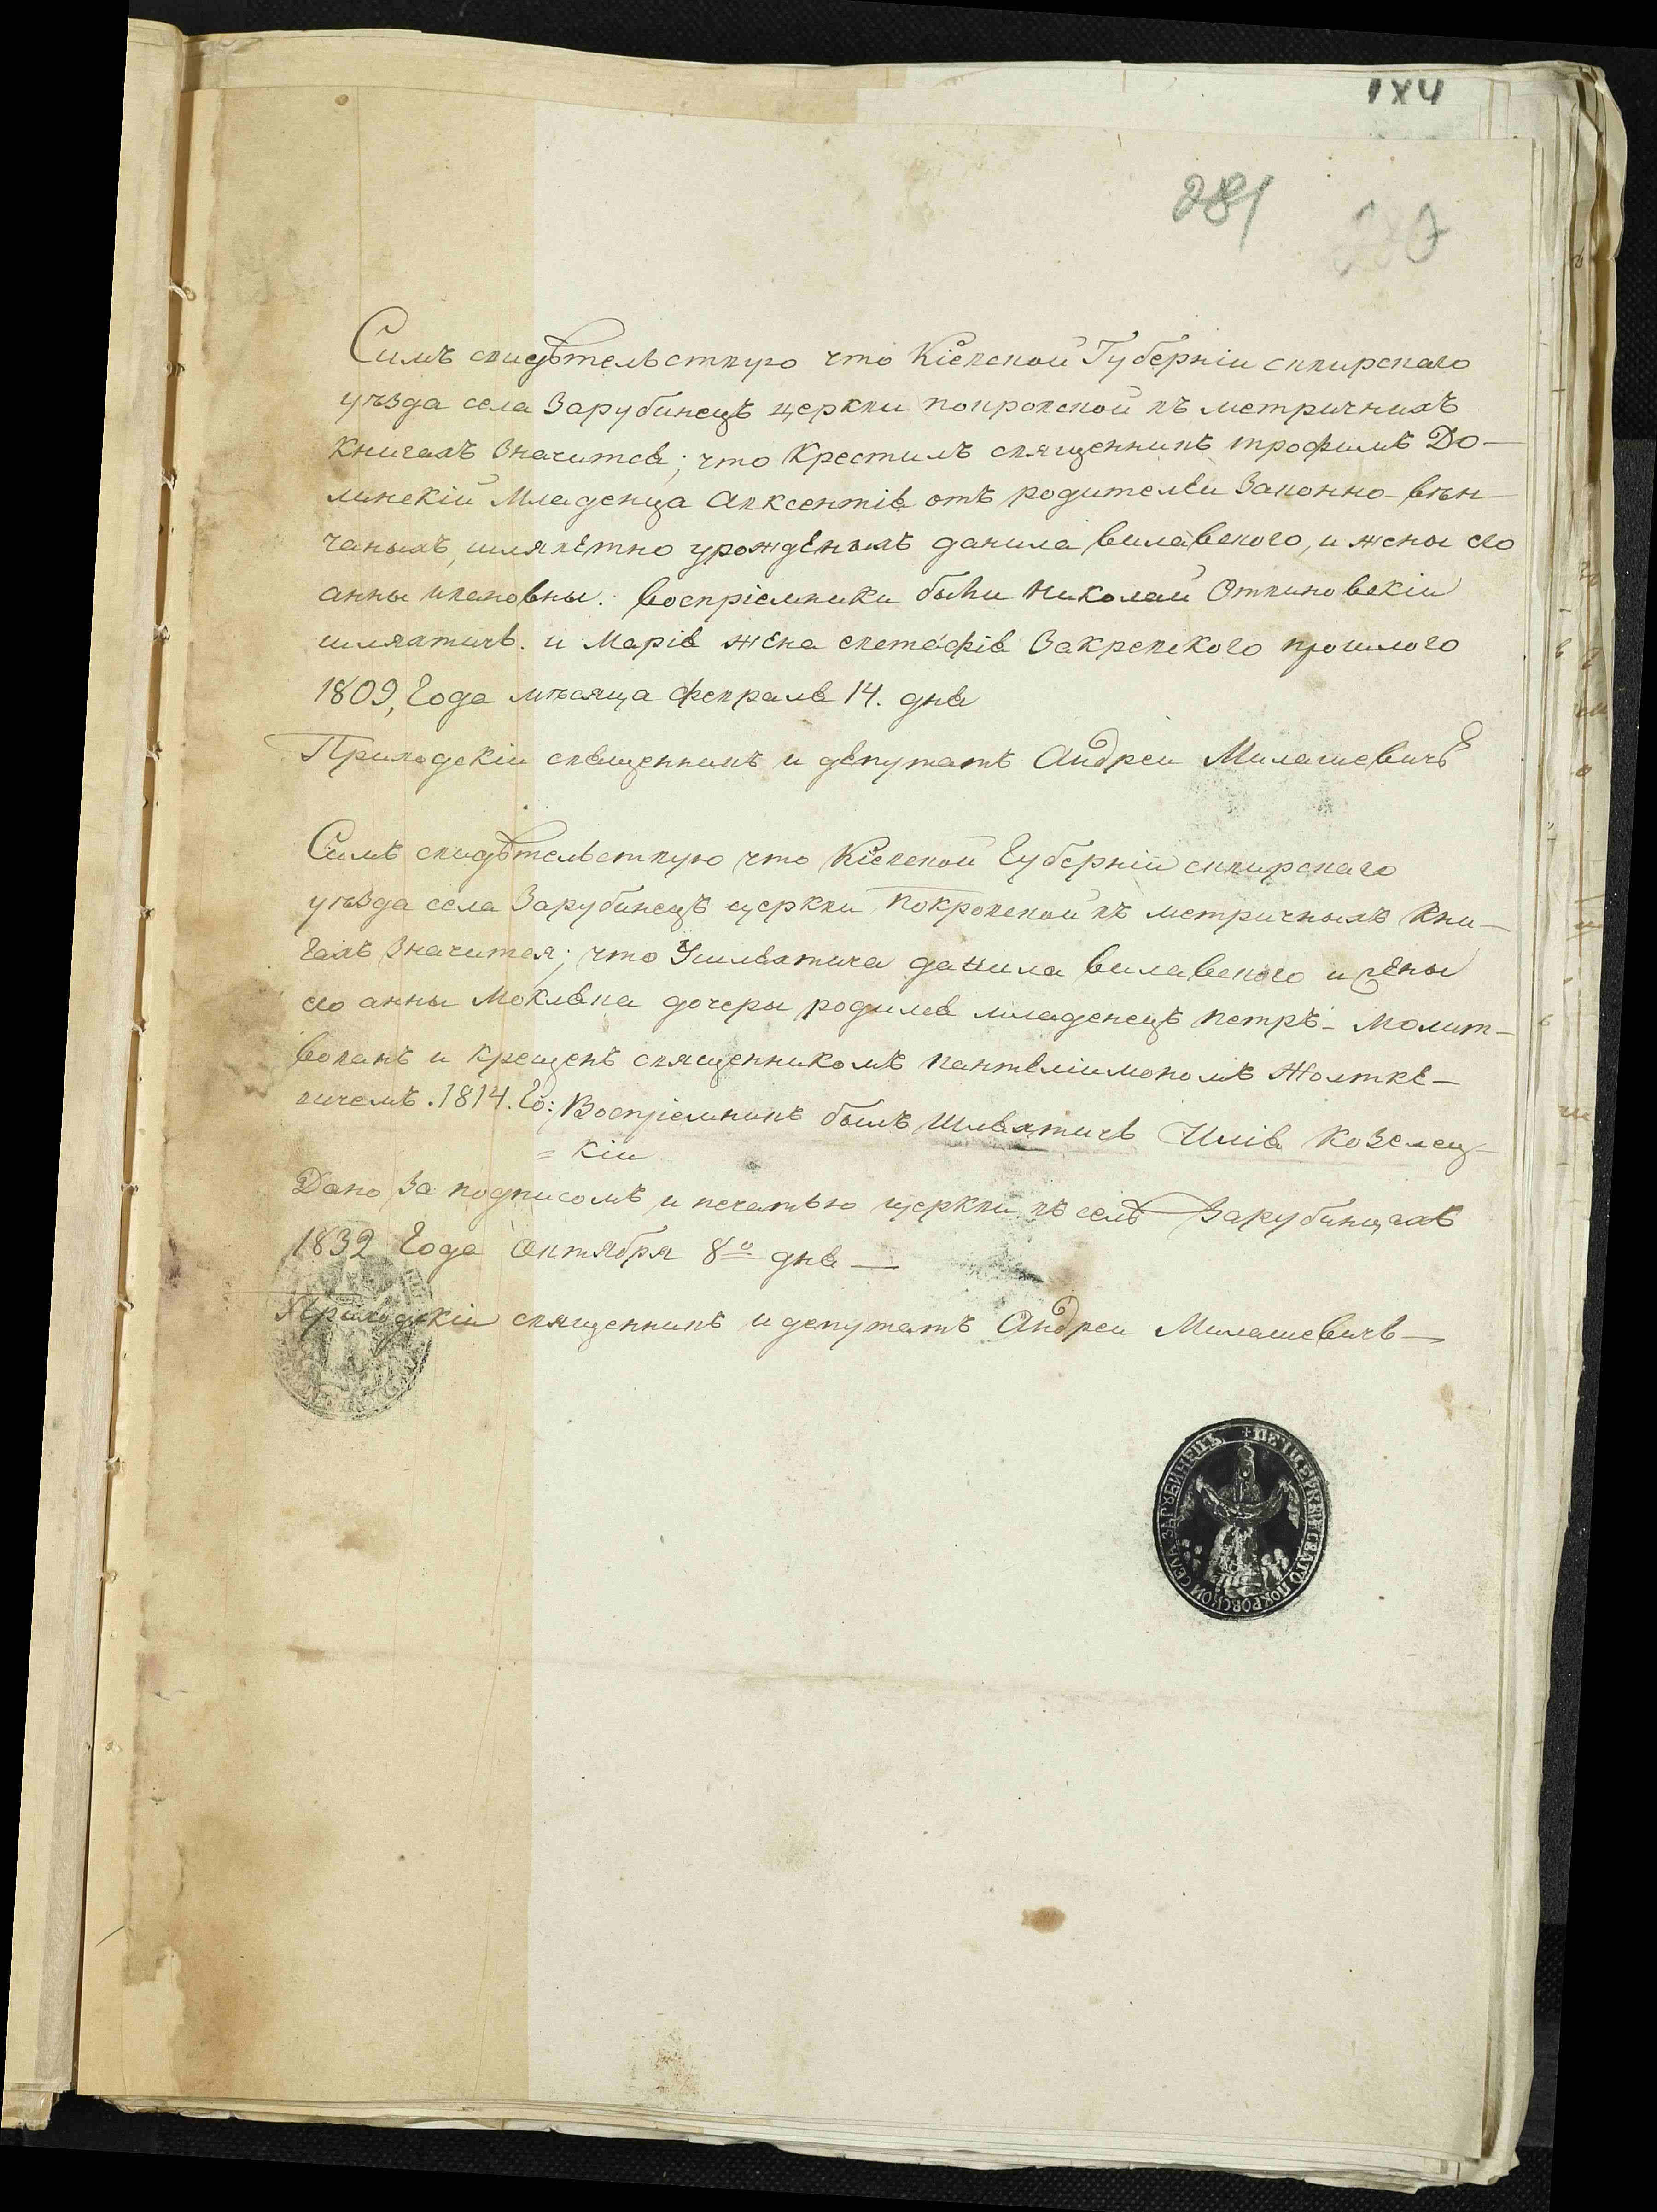 281
Симъ свидѣтельствую что Кіевской Губерніи сквирскаго
уѣзда села Зарубинецъ церкви покровской въ метричныхъ
книгахъ значится; что Крестилъ священникъ трофимъ До-
линскій Младенца Авксентія отъ родителей Законно-вѣн-
чаныхъ, шляхетно урожденыхъ данила вилявского, и жены его
анны ивановны. воспріемники были Николай Отвиновскій
шляхтичъ. и Марія жена Закревского прошлого
1809, Года мѣсяца февраля 14. дня
Приходскій священникъ и депутатъ Андрей Милашевичъ
Симъ свидѣтельствую что Кіевской Губерній сквирскаго
уѣзда села Зарубинецъ церкви Покровской въ метричныхъ Кни-
гахъ Значится; что Ушляхтича данила вилявского и жены
его анны дочеры родился младенецъ петръ - Молит-
вованъ и крещенъ священникомъ пантелиимономъ Жолтке-
вичемъ. 1814. Го: Воспріемникъ былъ Шляхтичъ Илія Козелец-
= кій
Дано За подписомъ и печатью церкви въ селѣ Зарубинцахъ
1832 Года Октября 8го дня —
Приходскій священникъ и депутатъ Андрей Милашевичъ —
+ ПЕЧ: ЦЕРКВИ СВЯТО ПОКРОВСКОЙ СЕЛА ЗАРУБИНЕЦЪ